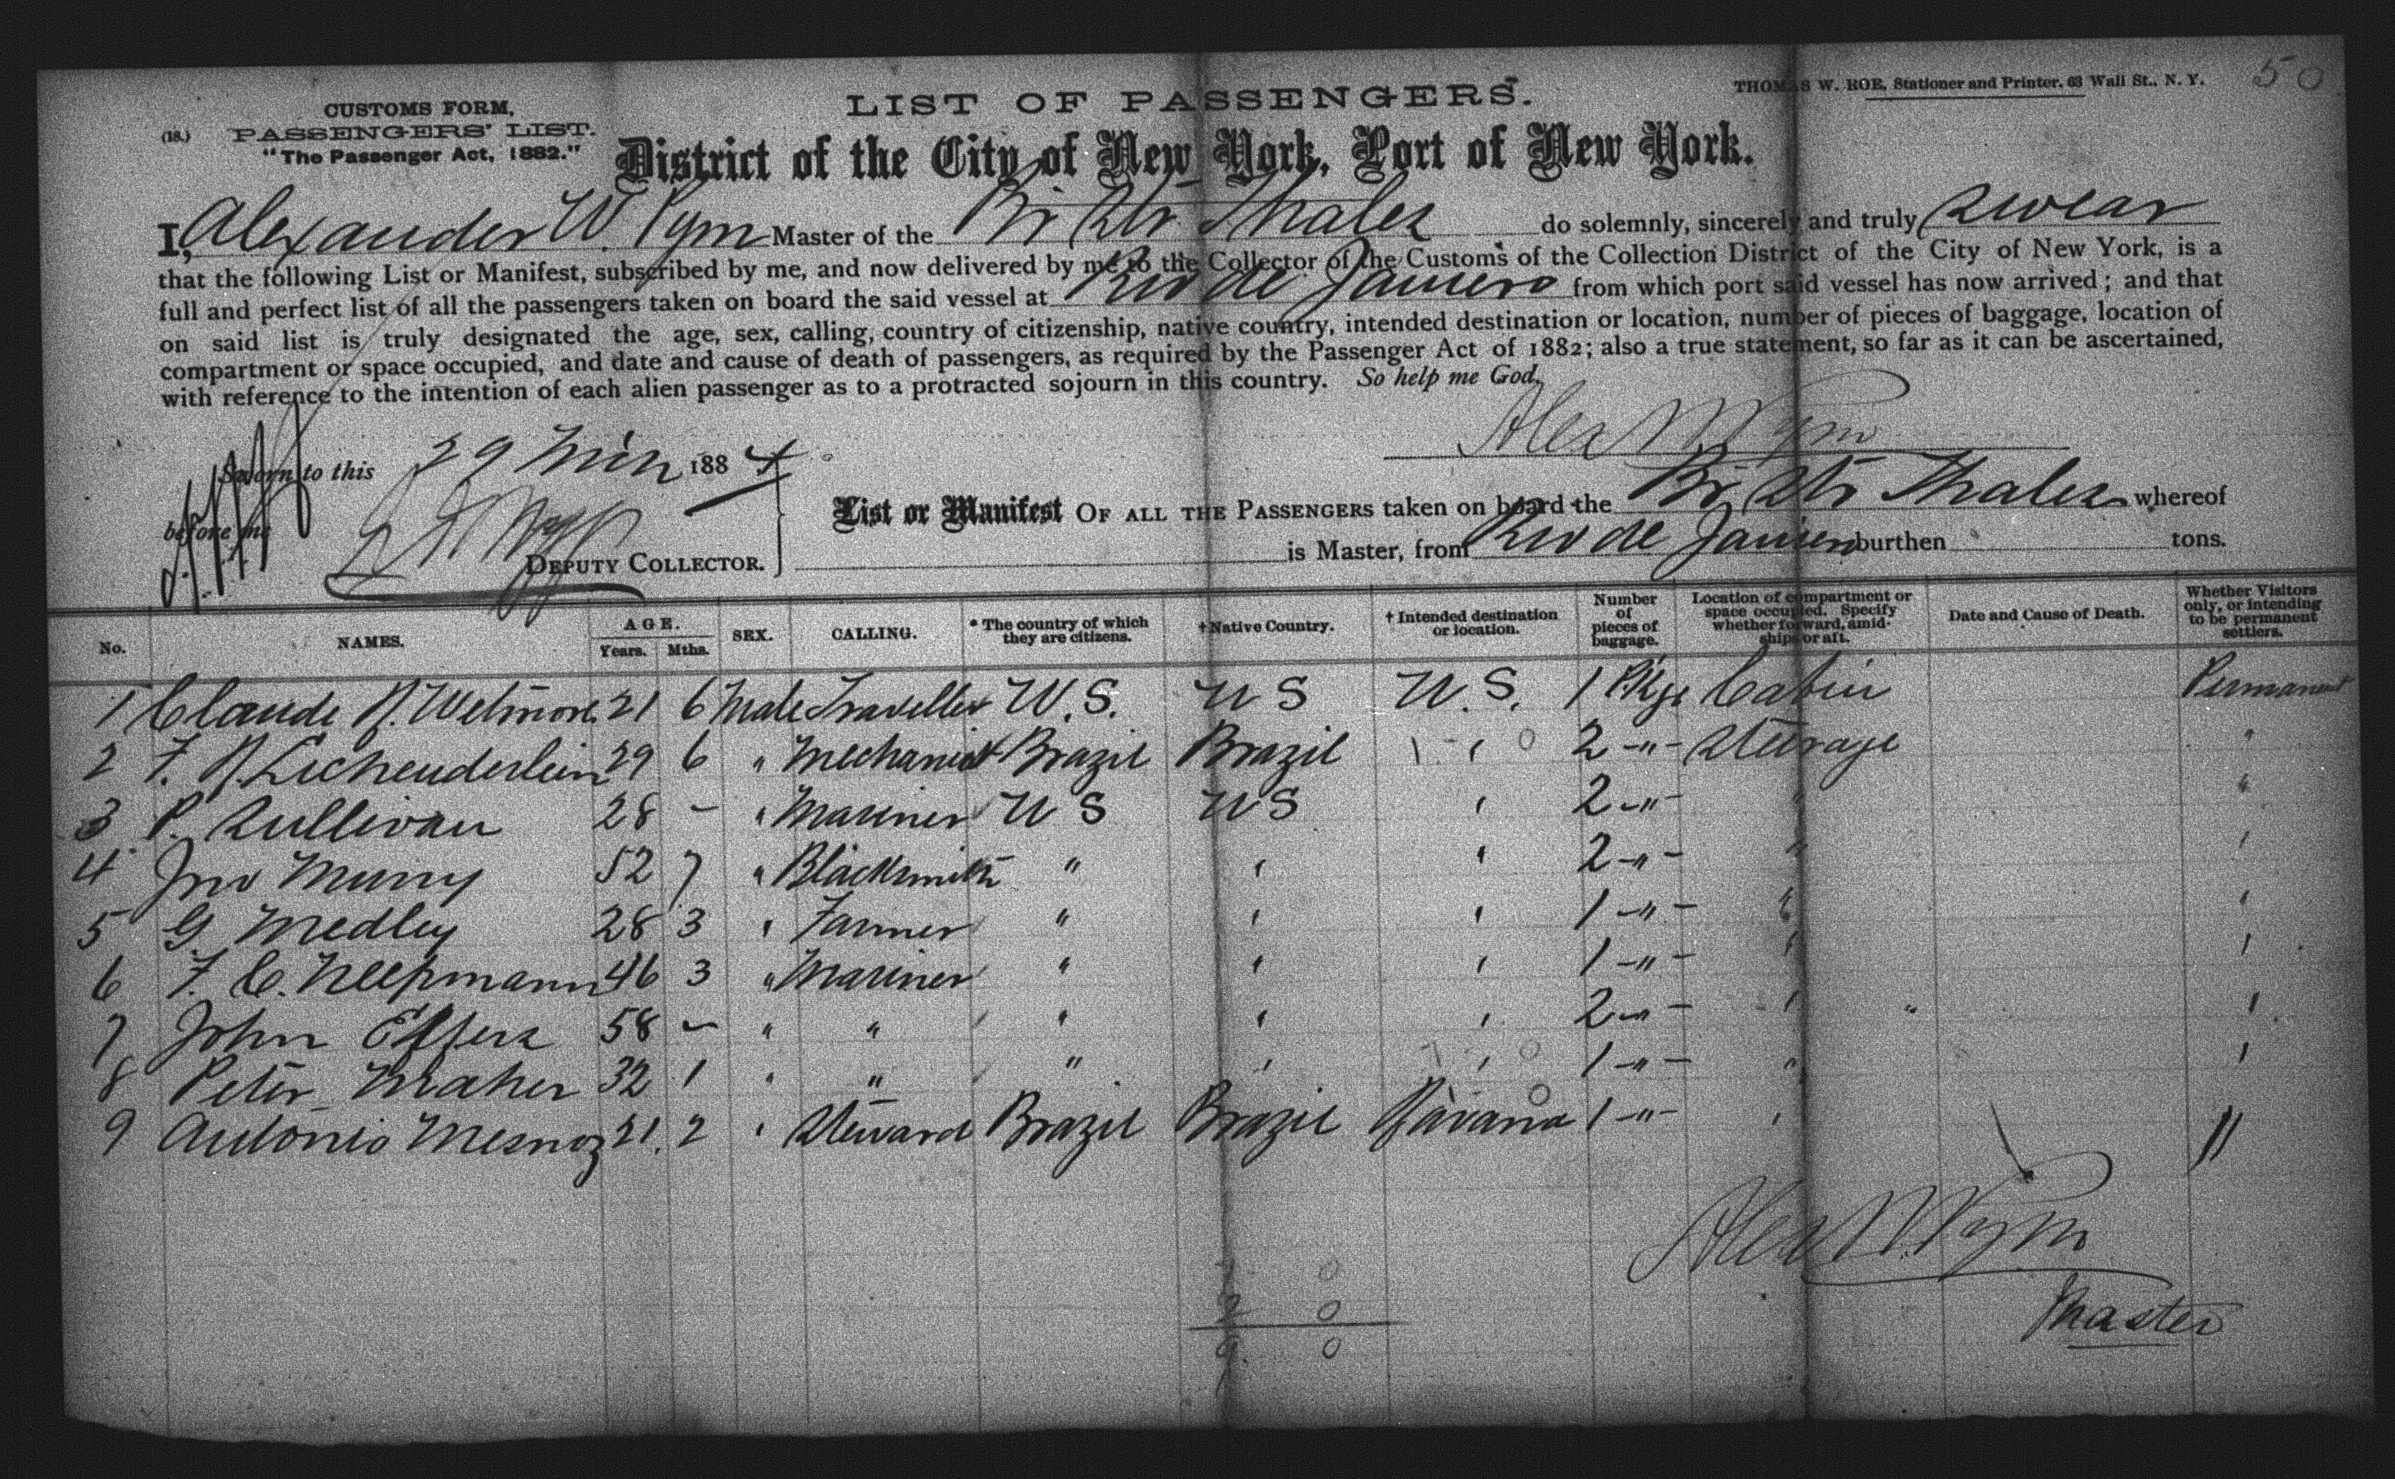 THOMAS W. ROE, Stationer and Printer, 63 Wall St., N. Y. 50
CUSTOMS FORM,
(18.) PASSENGERS' LIST.
"The Passenger Act, 1882."
LIST OF PASSENGERS.
District of the City of New York, Port of New York.
I, Alexander W. Pym Master of the Br Str Thales do solemnly, sincerely and truly swear
that the following List or Manifest, subscribed by me, and now delivered by me to the Collector of the Customs of the Collection District of the City of New York, is a
full and perfect list of all the passengers taken on board the said vessel at Rio de Janiero from which port said vessel has now arrived; and that
on said list is truly designated the age, sex, calling, country of citizenship, native country, intended destination or location, number of pieces of baggage, location of
compartment or space occupied, and date and cause of death of passengers, as required by the Passenger Act of 1882; also a true statement, so far as it can be ascertained,
with reference to the intention of each alien passenger as to a protracted sojourn in this country. So help me God.
Alex W Pym
Sworn to this 29 1884
before me
DEPUTY COLLECTOR.
List or Manifest OF ALL THE PASSENGERS taken on board the Br Str Thales whereof
is Master, from Rio de Janiero burthen tons.
No. NAMES. AGE. Years. Mths. SEX. CALLING. * The country of which they are citizens. † Native Country. † Intended destination or location. Number of pieces of baggage. Location of compartment or space occupied. Specify whether forward, amidships or aft. Date and Cause of Death. Whether Visitors only, or intending to be permanent settlers.
1 Claude H. Wetmore 21 6 Male Traveller U.S. U S U.S. 1 Pkge Cabin Permanent
2 F. 29 6 " Mechanist Brazil Brazil " 2 -"- Steerage "
3 P. Sullivan 28 - " Mariner U S U S " 2 -"- " "
4 Jno Murry 52 7 " Blacksmith " " " 2 -"- " "
5 G. Medley 28 3 " Farmer " " " 1 -"- " "
6 F. C. Neepmann 46 3 " Mariner " " " 1 -"- " "
7 John Effers 58 - " " " " " 2 -"- " "
8 Peter Maher 32 1 " " " " " 1 -"- " "
9 Antonio Mesnoz 21. 2 " Steward Brazil Brazil Havana 1 -"- " "
Alex W. Pym
Master
7 0
2 0
9 0